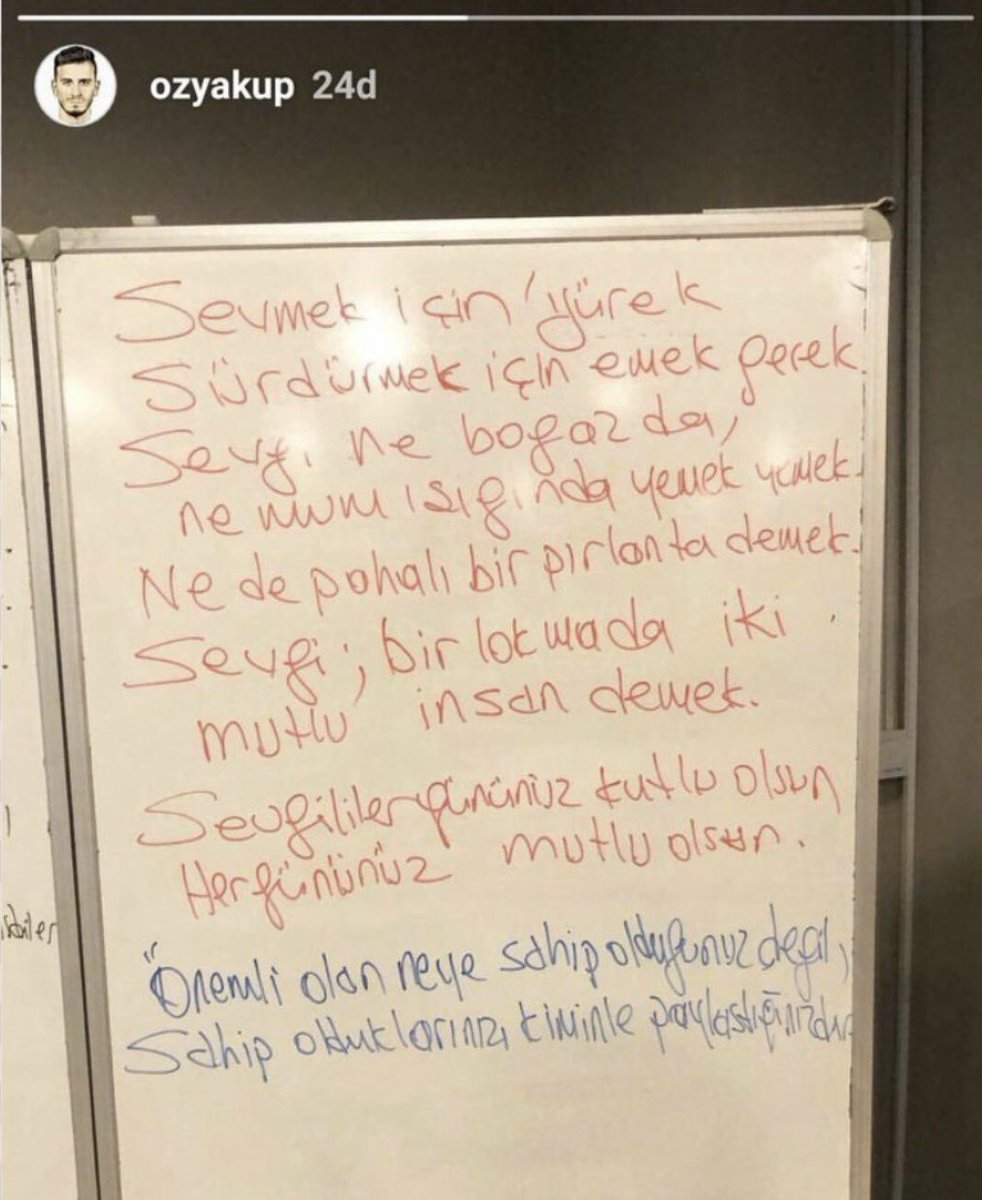 ozyakup 24d
Sevmek için yürek
Sürdürmek için emek gerek.
Sevgi ne boğazda,
ne mum ışığında yemek yemek.
Ne de pahalı bir pırlanta demek.
Sevgi; bir lokmada iki
mutlu insan demek.
Sevgililer gününüz kutlu olsun
Her gününüz mutlu olsun.
"Önemli olan neye sahip olduğunuz değil,
Sahip olduklarınızı kiminle paylaştığınızdır